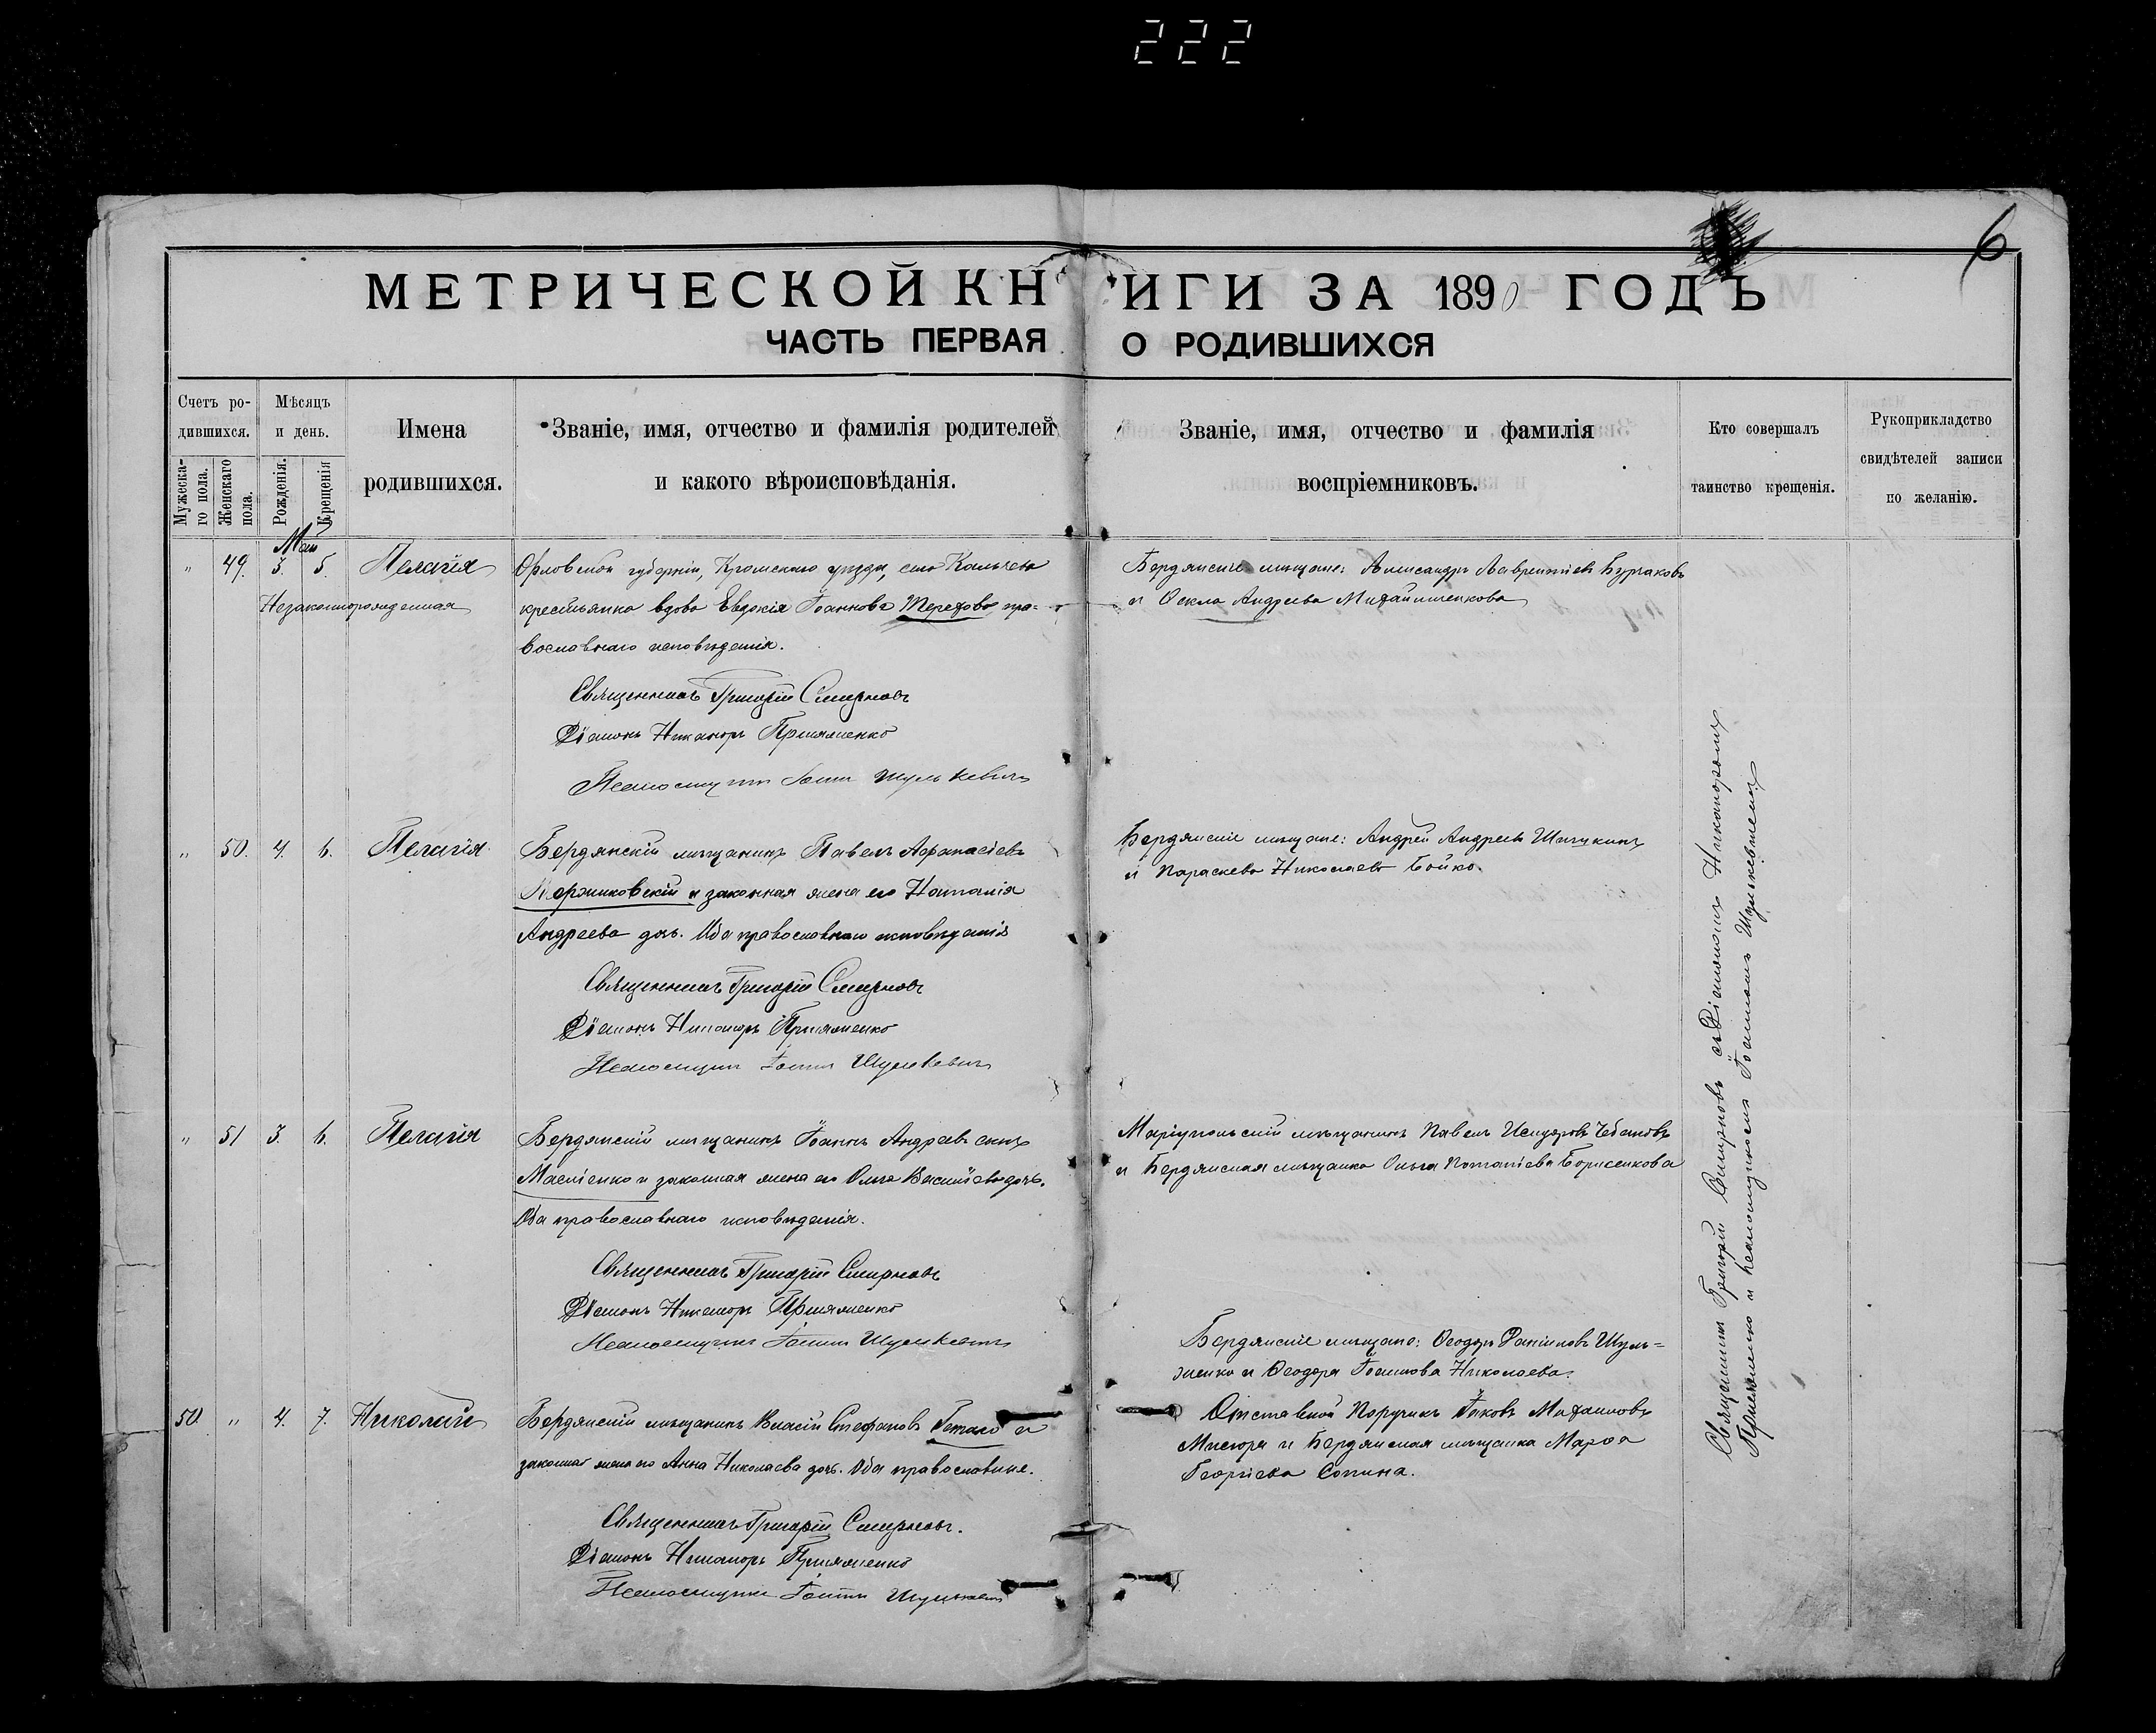 222
6
МЕТРИЧЕСКОЙ КНИГИ ЗА 1890 ГОДЪ
ЧАСТЬ ПЕРВАЯ О РОДИВШИХСЯ
Счетъ родившихся.
Мужескаго пола.
Женскаго пола.
Мѣсяцъ и день.
Рожденія.
Крещенія
Имена родившихся.
Званіе, имя, отчество и фамилія родителей
и какого вѣроисповѣданія.
Званіе, имя, отчество и фамилія
воспріемниковъ.
Кто совершалъ
таинство крещенія.
Рукоприкладство
свидѣтелей записи
по желанію.
Май
" 49. 3. 5. Пелагія
Незаконнорожденная
Орловской губерніи, Кромскаго уѣзда, села
крестьянка вдова Евдокія Іоаннова Терехова пра-
вославнаго исповѣданія.
Священникъ Григорій Смирновъ
Діаконъ Никаноръ
Псаломщикъ Іоаннъ Шулькевичъ
Бердянскіе мѣщане: Александръ Лаврентіевъ Бурлаковъ
и Ѳекла Андреева
" 50. 4. 6. Пелагія
Бердянскій мѣщанинъ Павелъ Аѳанасіевъ
Коржиковскій и законная жена его Наталія
Андреева дочь. Оба православнаго исповѣданія
Священникъ Григорій Смирновъ
Діаконъ Никаноръ
Псаломщикъ Іоаннъ Шулькевичъ
Бердянскіе мѣщане: Андрей Андреевъ Шишкинъ
и Параскева Николаева Бойко.
" 51 3. 6. Пелагія
Бердянскій мѣщанинъ Іоаннъ Андреевъ сынъ
Масліенко и законная жена его Ольга Василіева дочь.
Оба православнаго исповѣданія.
Священникъ Григорій Смирновъ
Діаконъ Никаноръ
Псаломщикъ Іоаннъ Шулькевичъ
Маріупольскій мѣщанинъ Павелъ Исидоровъ Чебановъ
и Бердянская мѣщанка Ольга Потапіева Борисенкова
50. " 4. 7. Николай
Бердянскій мѣщанинъ Власій Стефановъ и
законная жена его Анна Николаева дочь. Оба православные.
Священникъ Григорій Смирновъ.
Діаконъ Никаноръ
Псаломщикъ Іоаннъ Шулькевичъ
Бердянскіе мѣщане: Ѳеодоръ Даніиловъ Шуль-
женко и Ѳеодора Іоаннова Николаева.
Отставной Поручикъ Іаковъ Михаиловъ
и Бердянская мѣщанка Марѳа
Георгіева Сопина.
Священникъ Григорій Смирновъ съ Діакономъ Никаноромъ
и псаломщикомъ Іоанномъ Шулькевичемъ